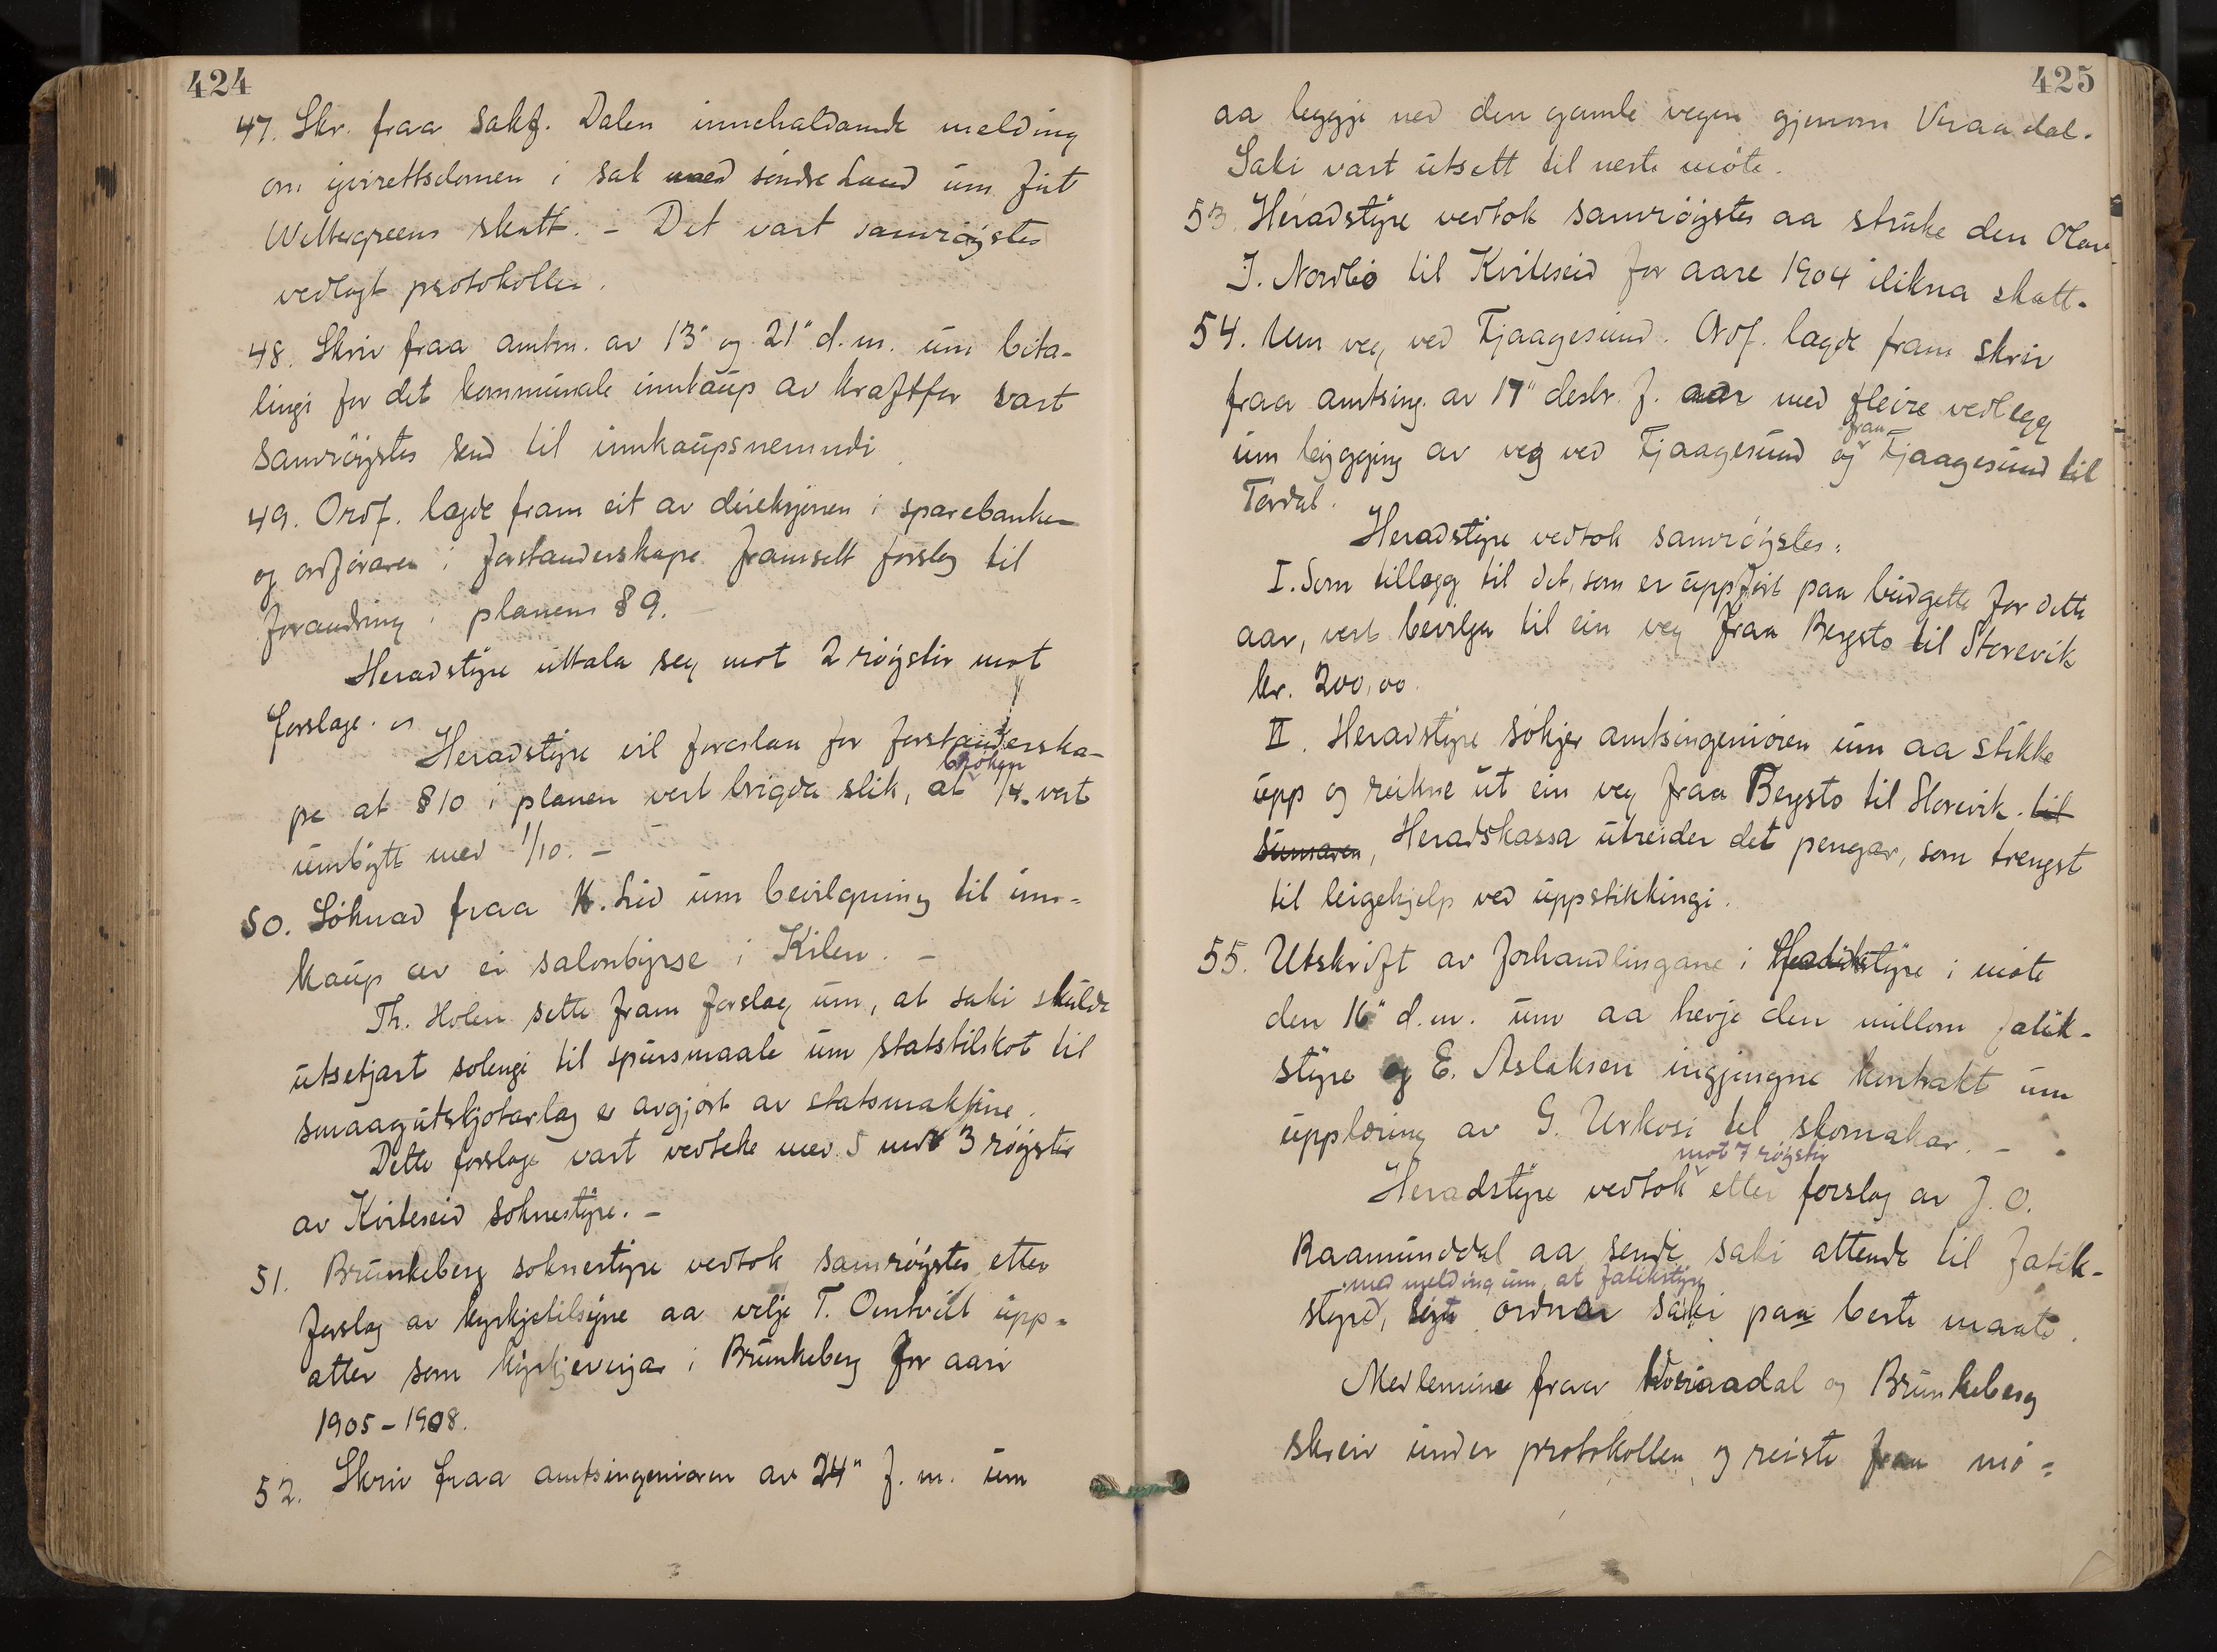 424
47. Skr. fraa Sakf. Dalen innehaldande melding
om yvirettsdomen i sak med søndre Land um frk
Wettergreens skatt. – Det vart samrøystes
vedlagt protokollen.
48. Skriv fraa amtm. av 13" og 21" d. m. um beta-
lingi for det kommunale innkaup av kraftfor vart
samrøystes send til innkaupsnemndi.
49. Ordf. lagde fram eit av direksjonen i sparebanken
og ordføraren i forstanderskape framsett forslag til
forandring i planens § 9.
Heradstyre uttala seg mot 2 røyster mot
forslage.
Heradstyre vil foreslaa for forstanderska-
pe at § 10 i planen vert brigda slik, at brøken 1/4 vert
umbytt med 1/10. –
50. Søknad fraa K. Lid um bevilgning til inn-
kaup av ei salonbyrse i Kilen. –
Th. Holen sette fram forslag um, at saki skulde
utsetjast solengi til spursmaale um statstilskot til
smaagutskjotarlag er avgjort av statsmaktine.
Dette forslage vart vedteke med 5 mot 3 røyster
av Kviteseid soknestyre. –
51. Brunkeberg soknestyre vedtok samrøystes etter
forslag av kyrkjetilsyne aa velje T. Omtvitt upp-
atter som kyrkjeverjar i Brunkeberg for aari
1905–1908.
52. Skriv fraa amtsingeniøren av 24" f. m. um
425
aa leggje ned den gamle vegen gjenom Vraadal.
Saki vart utsett til neste møte.
53. Heradstyre vedtok samrøystes aa struke den Olav
J. Nordbø til Kviteseid for aare 1904 ilikna skatt.
54. Um veg ved Fjaagesund. Ordf. lagde fram skriv
fraa amtsing. av 17" desbr. f. aar med fleire vedlegg
um leggjing av veg ved Fjaagesund og fraa Fjaagesund til
Tørdal.
Heradstyre vedtok samrøystes:
I. Som tillegg til det, som er uppført paa budgette for dette
aar, vert bevilga til ein veg fraa Bergsto til Storevik
kr. 200,00.
II. Heradstyre søkjer amtsingeniøren um aa stikke
upp og reikne ut ein veg fraa Bergsto til Storevik. til
sumaren, Heradskassa utreider det pengar, som trengst
til leigehjelp ved uppstikkingi.
55. Utskrift av forhandlingane i fatikstyre i møte
den 16" d. m. um aa hevje den millom fatik-
styre og E. Aslaksen inggjengne kontrakt um
upplæring av G. Urkosi til skomakar. –
Heradstyre vedtok mot 7 røyster etter forslag av J. O.
Raamunddal aa sende saki attende til fatik-
styre, med melding um, at fatikstyre ordnar saki paa beste maate.
Medlemine fraa Vraadal og Brunkeberg
skreiv under protokollen og reiste fraa mø-